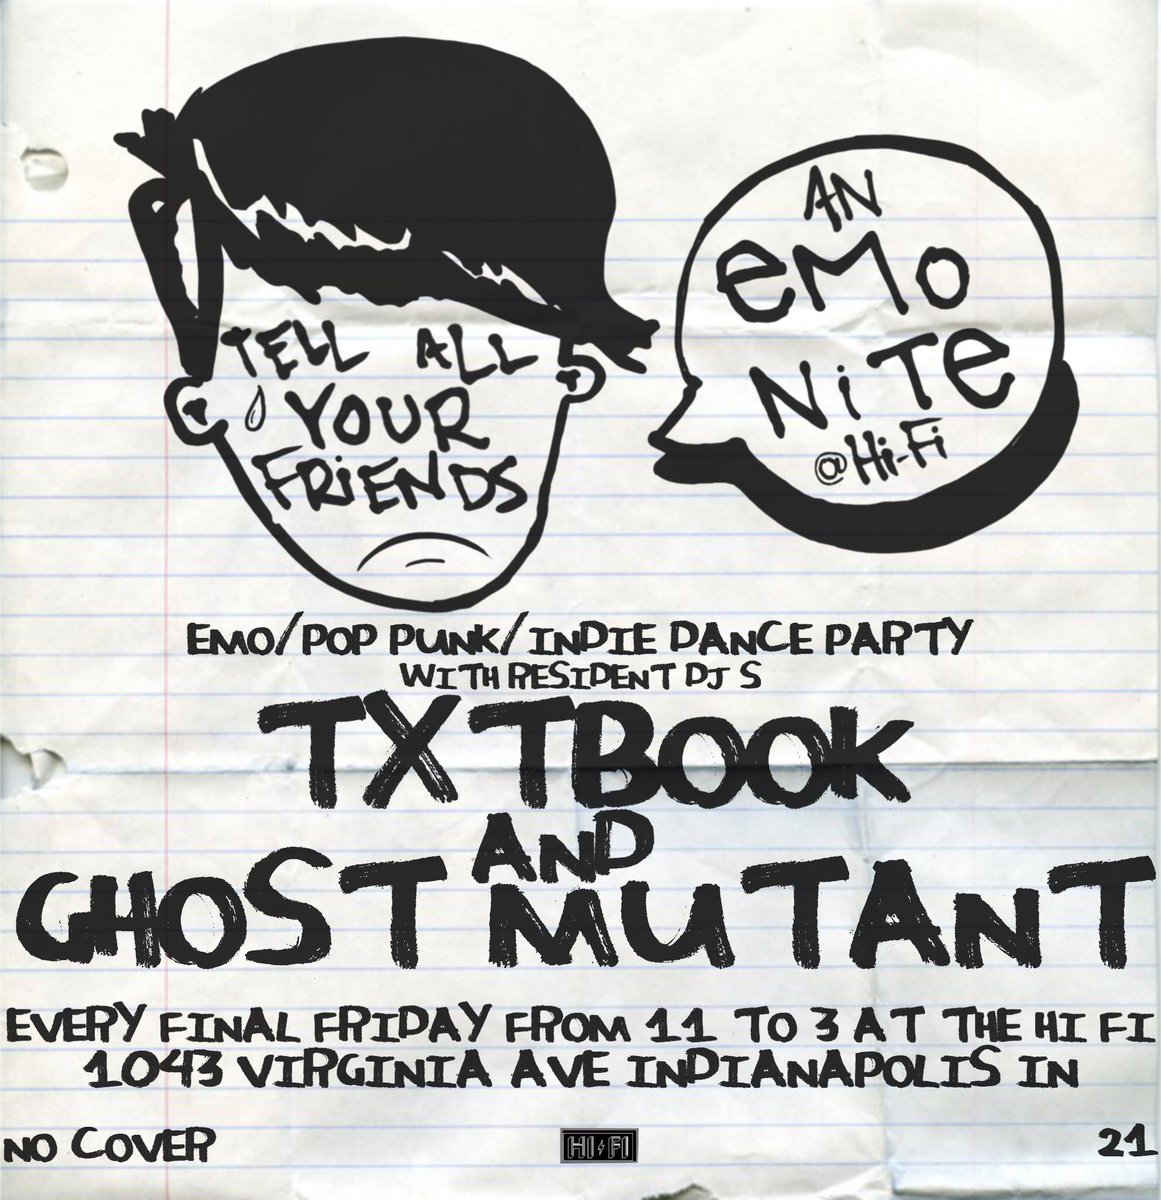 TELL ALL
YOUR
FRiENDS
AN
eMo
NiTe
@Hi-Fi
EMO/POP PUNK/INDIE DANCE PARTY
WITH RESIDENT DJ S
TXTBOOK
AND
GHOST MUTANT
EVERY FINAL FRIDAY FROM 11 TO 3 AT THE HI FI
1043 VIRGINIA AVE INDIANAPOLIS IN
NO COVER
HI FI
21